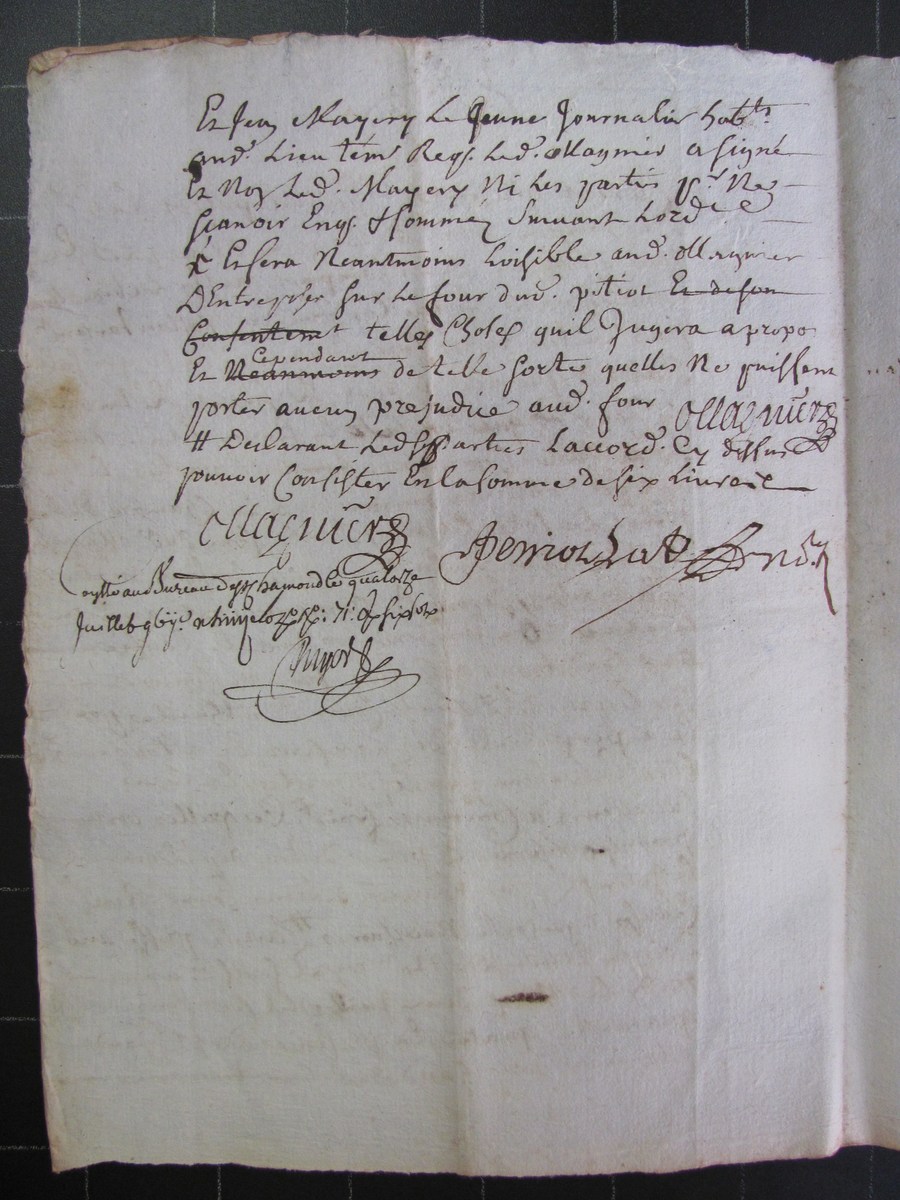 Et Jean Mayery Le Jeune Journalier habts
aud. Lieu tém. Req. Led. Ollagnier a signé
Et Non Led. Mayery Ni Les parties pr. Ne
Sçauoir Enq. & Sommés Suiuant Lord.ce
& Et sera Neantmoins Loisible aud. Ollagnier
DEntreprer sur Le four dud. pitiot Et de son
Consentemt telles Choses quil Jugera a propos
Cependant
Et Neanmoins de telle sorte quelles Ne puissent
porter aucun prejudice aud. four Ollagnier
# Desclarant Lesd. parties Laccord. Cy dessus
pouuoir Consister En la somme de six Liures
Ollagnier
au Bureau de St Chamond Le quatorze
Juillet six sols